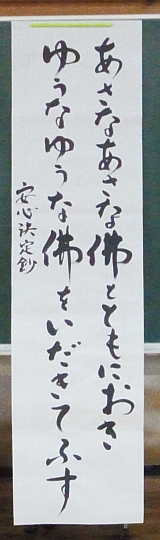 あさなあさな佛とともにおき
ゆうなゆうな佛をいだきてふす
安心決定鈔